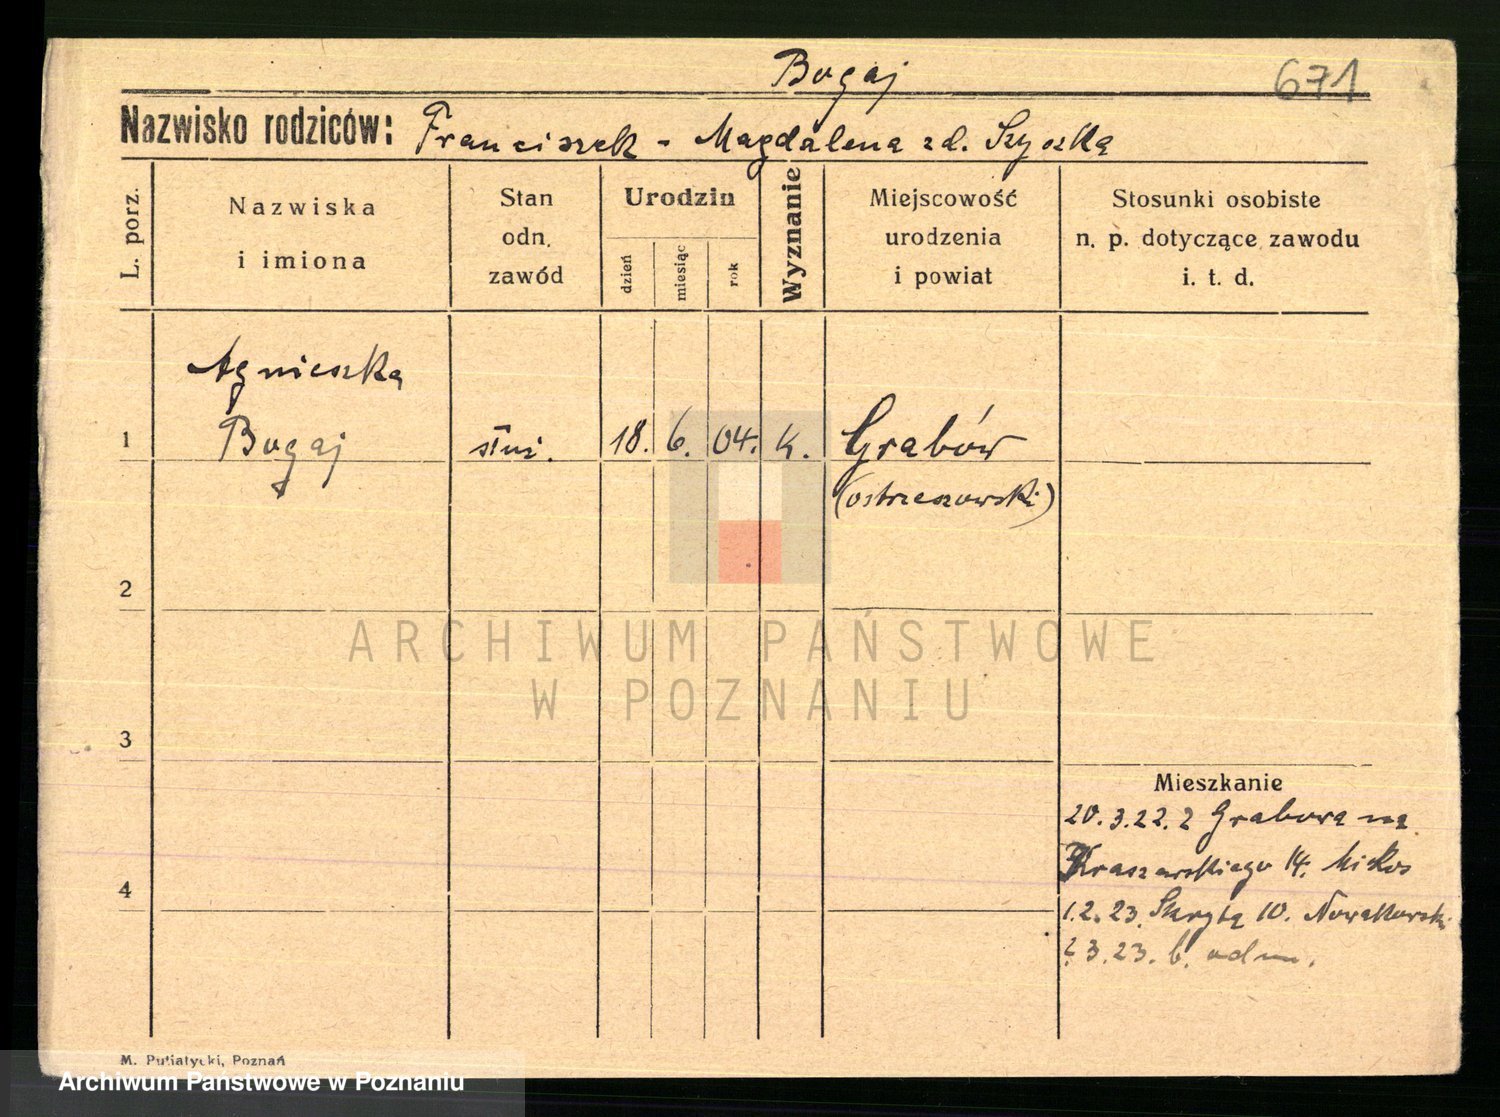 Bugaj
671
Nazwisko rodziców: Franciszek - Magdalena zd. Szyszka
L. porz.
Nazwiska
i imiona
Stan
odn.
zawód
Urodzin
dzień
miesiąc
rok
Wyznanie
Miejscowość
urodzenia
i powiat
Stosunki osobiste
n. p. dotyczące zawodu
i. t. d.
Agnieszka
1 Bugaj służ. 18. 6. 04. k. Grabów
(ostrzeszowski)
2
ARCHIWUM PAŃSTWOWE
W POZNANIU
3
Mieszkanie
20.3.22. z Grabowa na
Kraszewskiego 14.
4
1.2.23. Skryta 10. Nowakowski
3.23. b. odm.
M. Putiatycki, Poznań
Archiwum Państwowe w Poznaniu